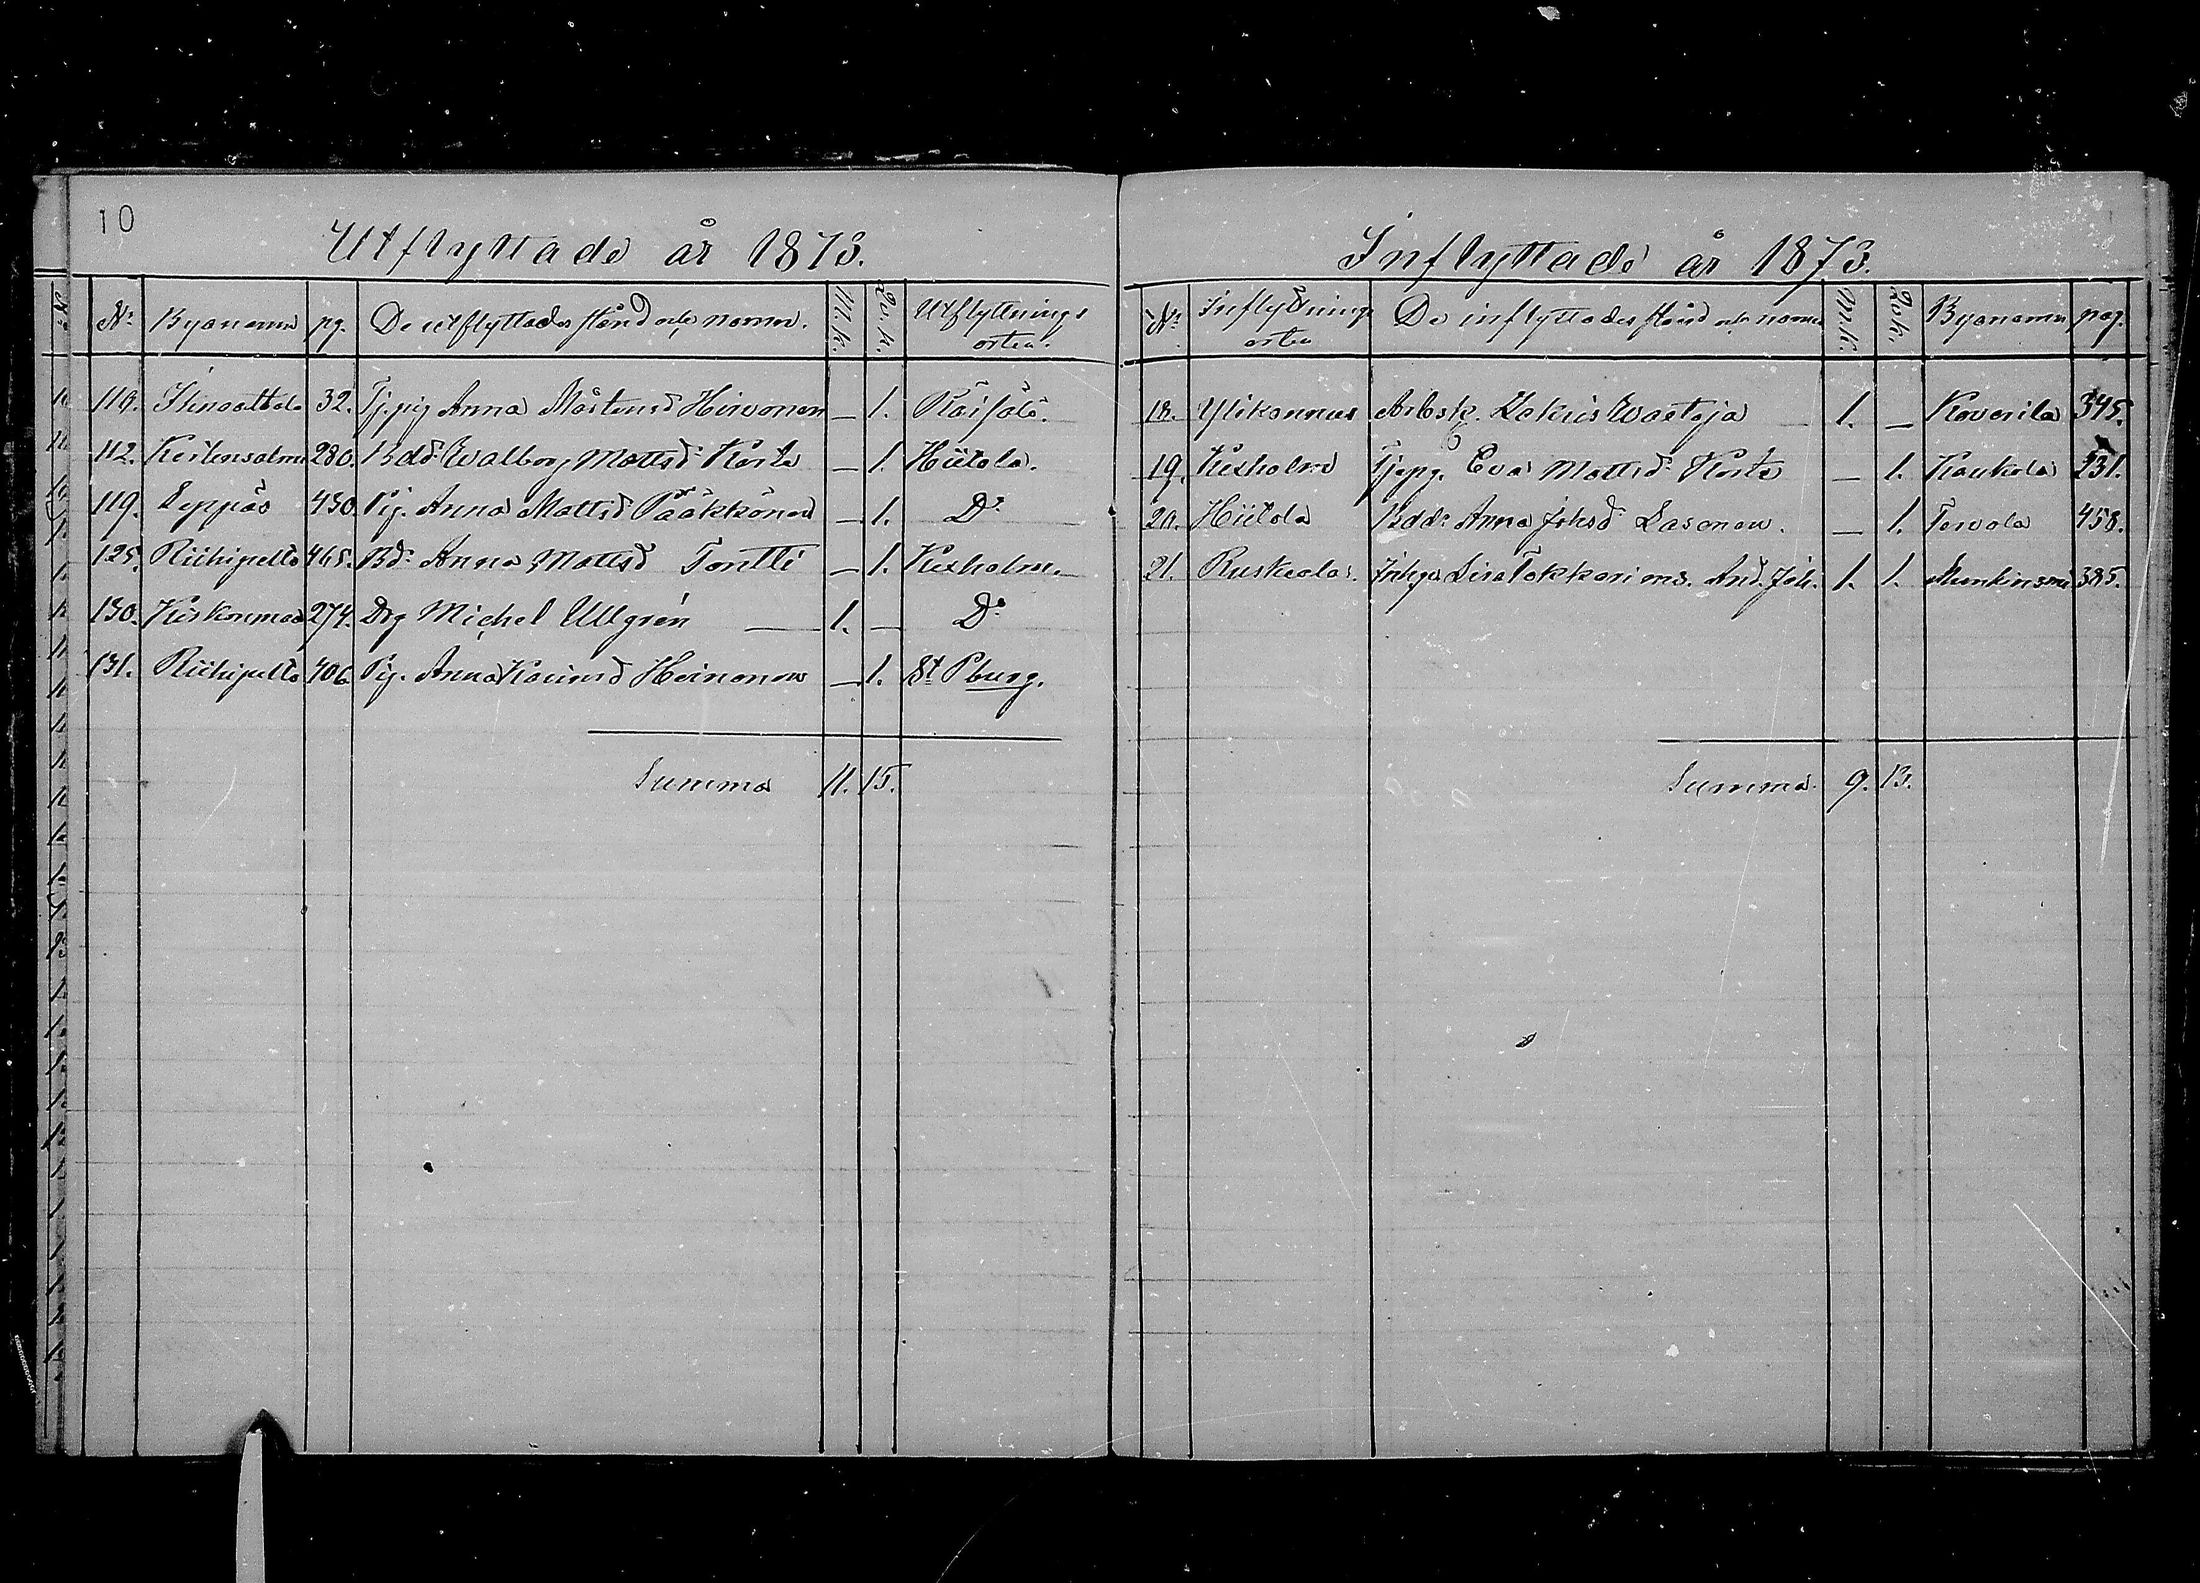 10
Utflyttade år 1873.
No Byanamn pg. De utflyttades stånd och namn. M.k. Qv.k. Utflyttnings orten.
110. 32. Tj. pig Anna Mårtensd Hirvonen — 1. Räisälä.
112. 280. Bdd. Walborg Mattsd Korte — 1. Hiitola.
119. Leppäs 430. Pig. Anna Mattsd Pääkkönen — 1. Do
125. Riihipelto 465. Bd. Anna Mattsd Tontti — 1. Kexholm.
130. 274. Drg Michel Ullgrén 1. — Do
131. Riihipelto 406. Pig. Anna Karinsd Heinonen — 1. St Pburg.
Summa 11. 15.
Inflyttade år 1873.
No Inflyttnings orten De inflyttades stånd och namn Mnk. Qvk. Byanamn pag.
18. Ylikannus Arbsk. Zakris Wastaja 1. — Koverila 345.
19. Kexholm Tjepg. Eva Mattsd Korte — 1. Kaukola 231.
20. Hiitola Bdd. Anna Johsd Lasonen. — 1. Tervola 458.
21. Ruskeala. Inhys Lisa And. Joh. 1. 1. 385.
Summa 9. 13.